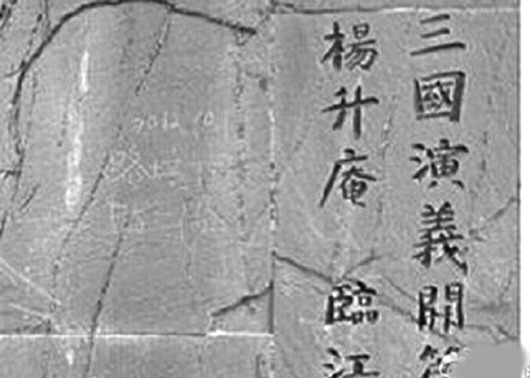 三國演義開
楊升庵 臨江